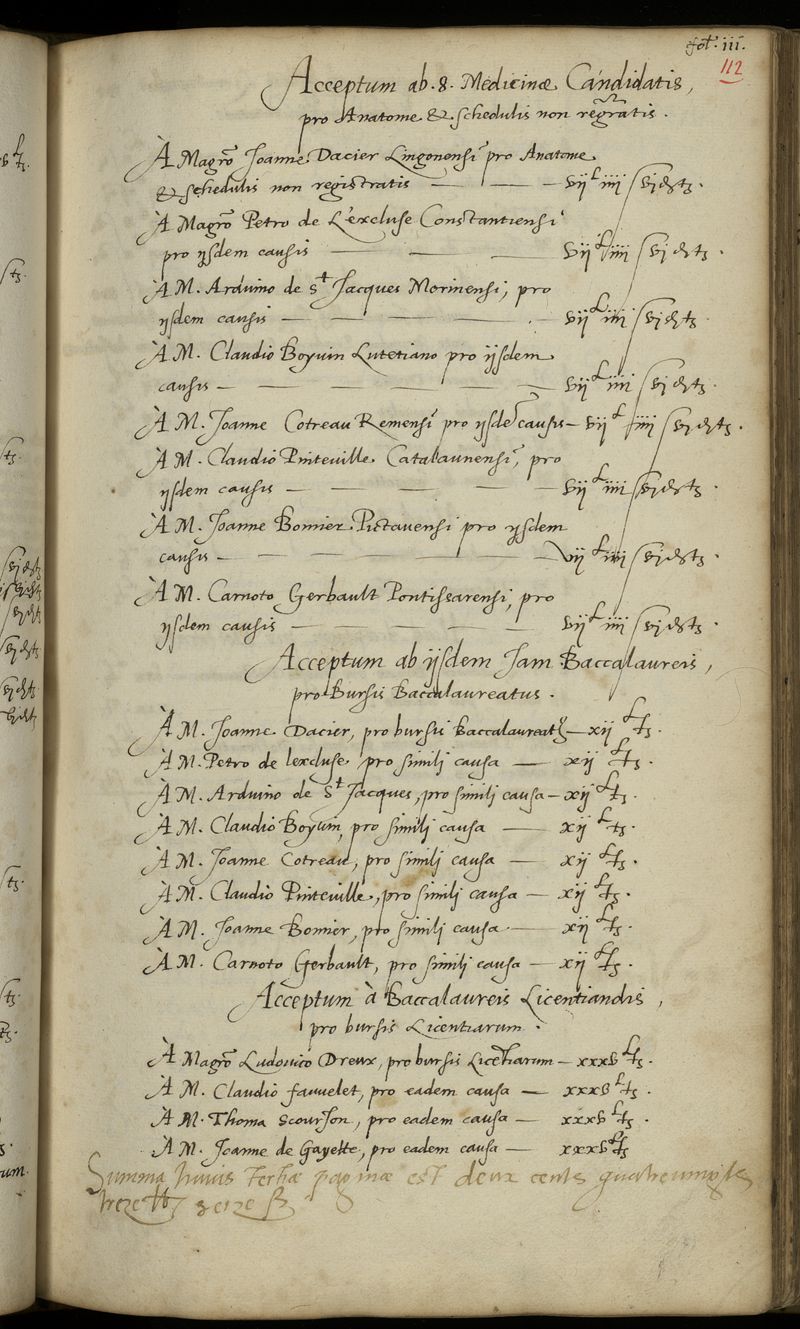 fol. iii.
112
Acceptum ab .8. Medicinæ Candidatis,
pro Anatome & schedulis non regratis.
À Magrō Joanne Dacier Lingonensi pro Anatome
& schedulis non registratis — — — vij L iiij ſ vj d ts.
À Magrō Petro de Lexcluse Constantiensi
pro ijsdem causis — — — vij L iiij ſ vj d ts.
À M. Arduino de St Jacques Morinensi, pro
ijsdem causis — — — — vij L iiij ſ vj d ts.
À M. Claudio Boyuin Lutetiano pro ijsdem
causis — — — — — vij L iiij ſ vj d ts.
À M. Joanne Cotreau Remensi pro ijsdē causis — vij L iiij ſ vj d ts.
À M. Claudio Pinteuille Catalaunensi, pro
ijsdem causis — — — — vij L iiij ſ vj d ts.
À M. Joanne Bonnier Pictauensi pro ijsdem
causis — — — — — vij L iiij ſ vj d ts.
À M. Carnoto Gerbault Pontissarensi, pro
ijsdem causis — — — — vij L iiij ſ vj d ts.
Acceptum ab ijsdem Jam Baccalaureis,
pro Bursis Baccalaureatus.
À M. Joanne Dacier, pro bursis Baccalaureat9 — xij L ts.
À M. Petro de lexcluse, pro simili causa — xij L ts.
À M. Arduino de St Jacques, pro simili causa — xij L ts.
À M. Claudio Boyuin, pro simili causa — xij L ts.
À M. Joanne Cotreau, pro simili causa — xij L ts.
À M. Claudio Pinteuille, pro simili causa — xij L ts.
À M. Joanne Bonnier, pro simili causa — xij L ts.
À M. Carnoto Gerbault, pro simili causa — xij L ts.
Acceptum à Baccalaureis Licentiandis,
pro bursis Licentiarum.
À Magrō Ludouico Dreux, pro bursis Licētiarum — xxxv L ts.
À M. Claudio fauuelet, pro eadem causa — xxxv L ts.
À M. Thoma Scourjon, pro eadem causa — xxxv L ts.
À M. Joanne de Gayette, pro eadem causa — xxxv L ts.
Summa huius tertiæ paginæ est deux cents quatreuingts
treze lt seize ſ